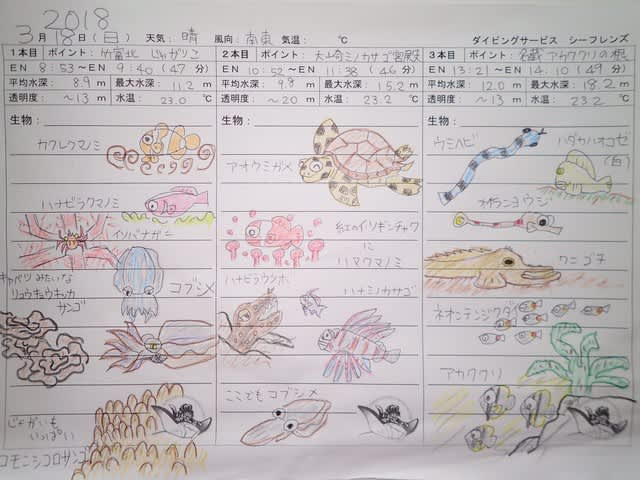 2018
3月18日(日) 天気: 晴 風向: 南東 気温: ℃ ダイビングサービス シーフレンズ
1本目 ポイント: 竹富北 じゃがりこ
EN 8:53 ～EN 9:40 (47分)
平均水深: 8.9 m 最大水深: 11.2 m
透明度: ～13 m 水温: 23.0 ℃
生物:
カクレクマノミ
ハナビラクマノミ
イソバナガニ
キャベツみたいな
リュウキュウキッカ
サンゴ
コブシメ
じゃがいも
いっぱい
コモンシコロサンゴ
2本目 ポイント: 大崎ミノカサゴ宮殿
EN 10:52 ～EN 11:38 (46分)
平均水深: 9.8 m 最大水深: 15.2 m
透明度: ～20 m 水温: 23.2 ℃
生物:
アオウミガメ
紅のイソギンチャク
に
ハマクマノミ
ハナビラウツボ
ハナミノカサゴ
ここでもコブシメ
3本目 ポイント: 名蔵アカククリの根
EN 13:21 ～EN 14:10 (49分)
平均水深: 12.0 m 最大水深: 18.2 m
透明度: ～13 m 水温: 23.2 ℃
生物:
ウミヘビ
ハダカハオコゼ
(白)
オイランヨウジ
ワニゴチ
ネオンテンジクダイ
アカククリ